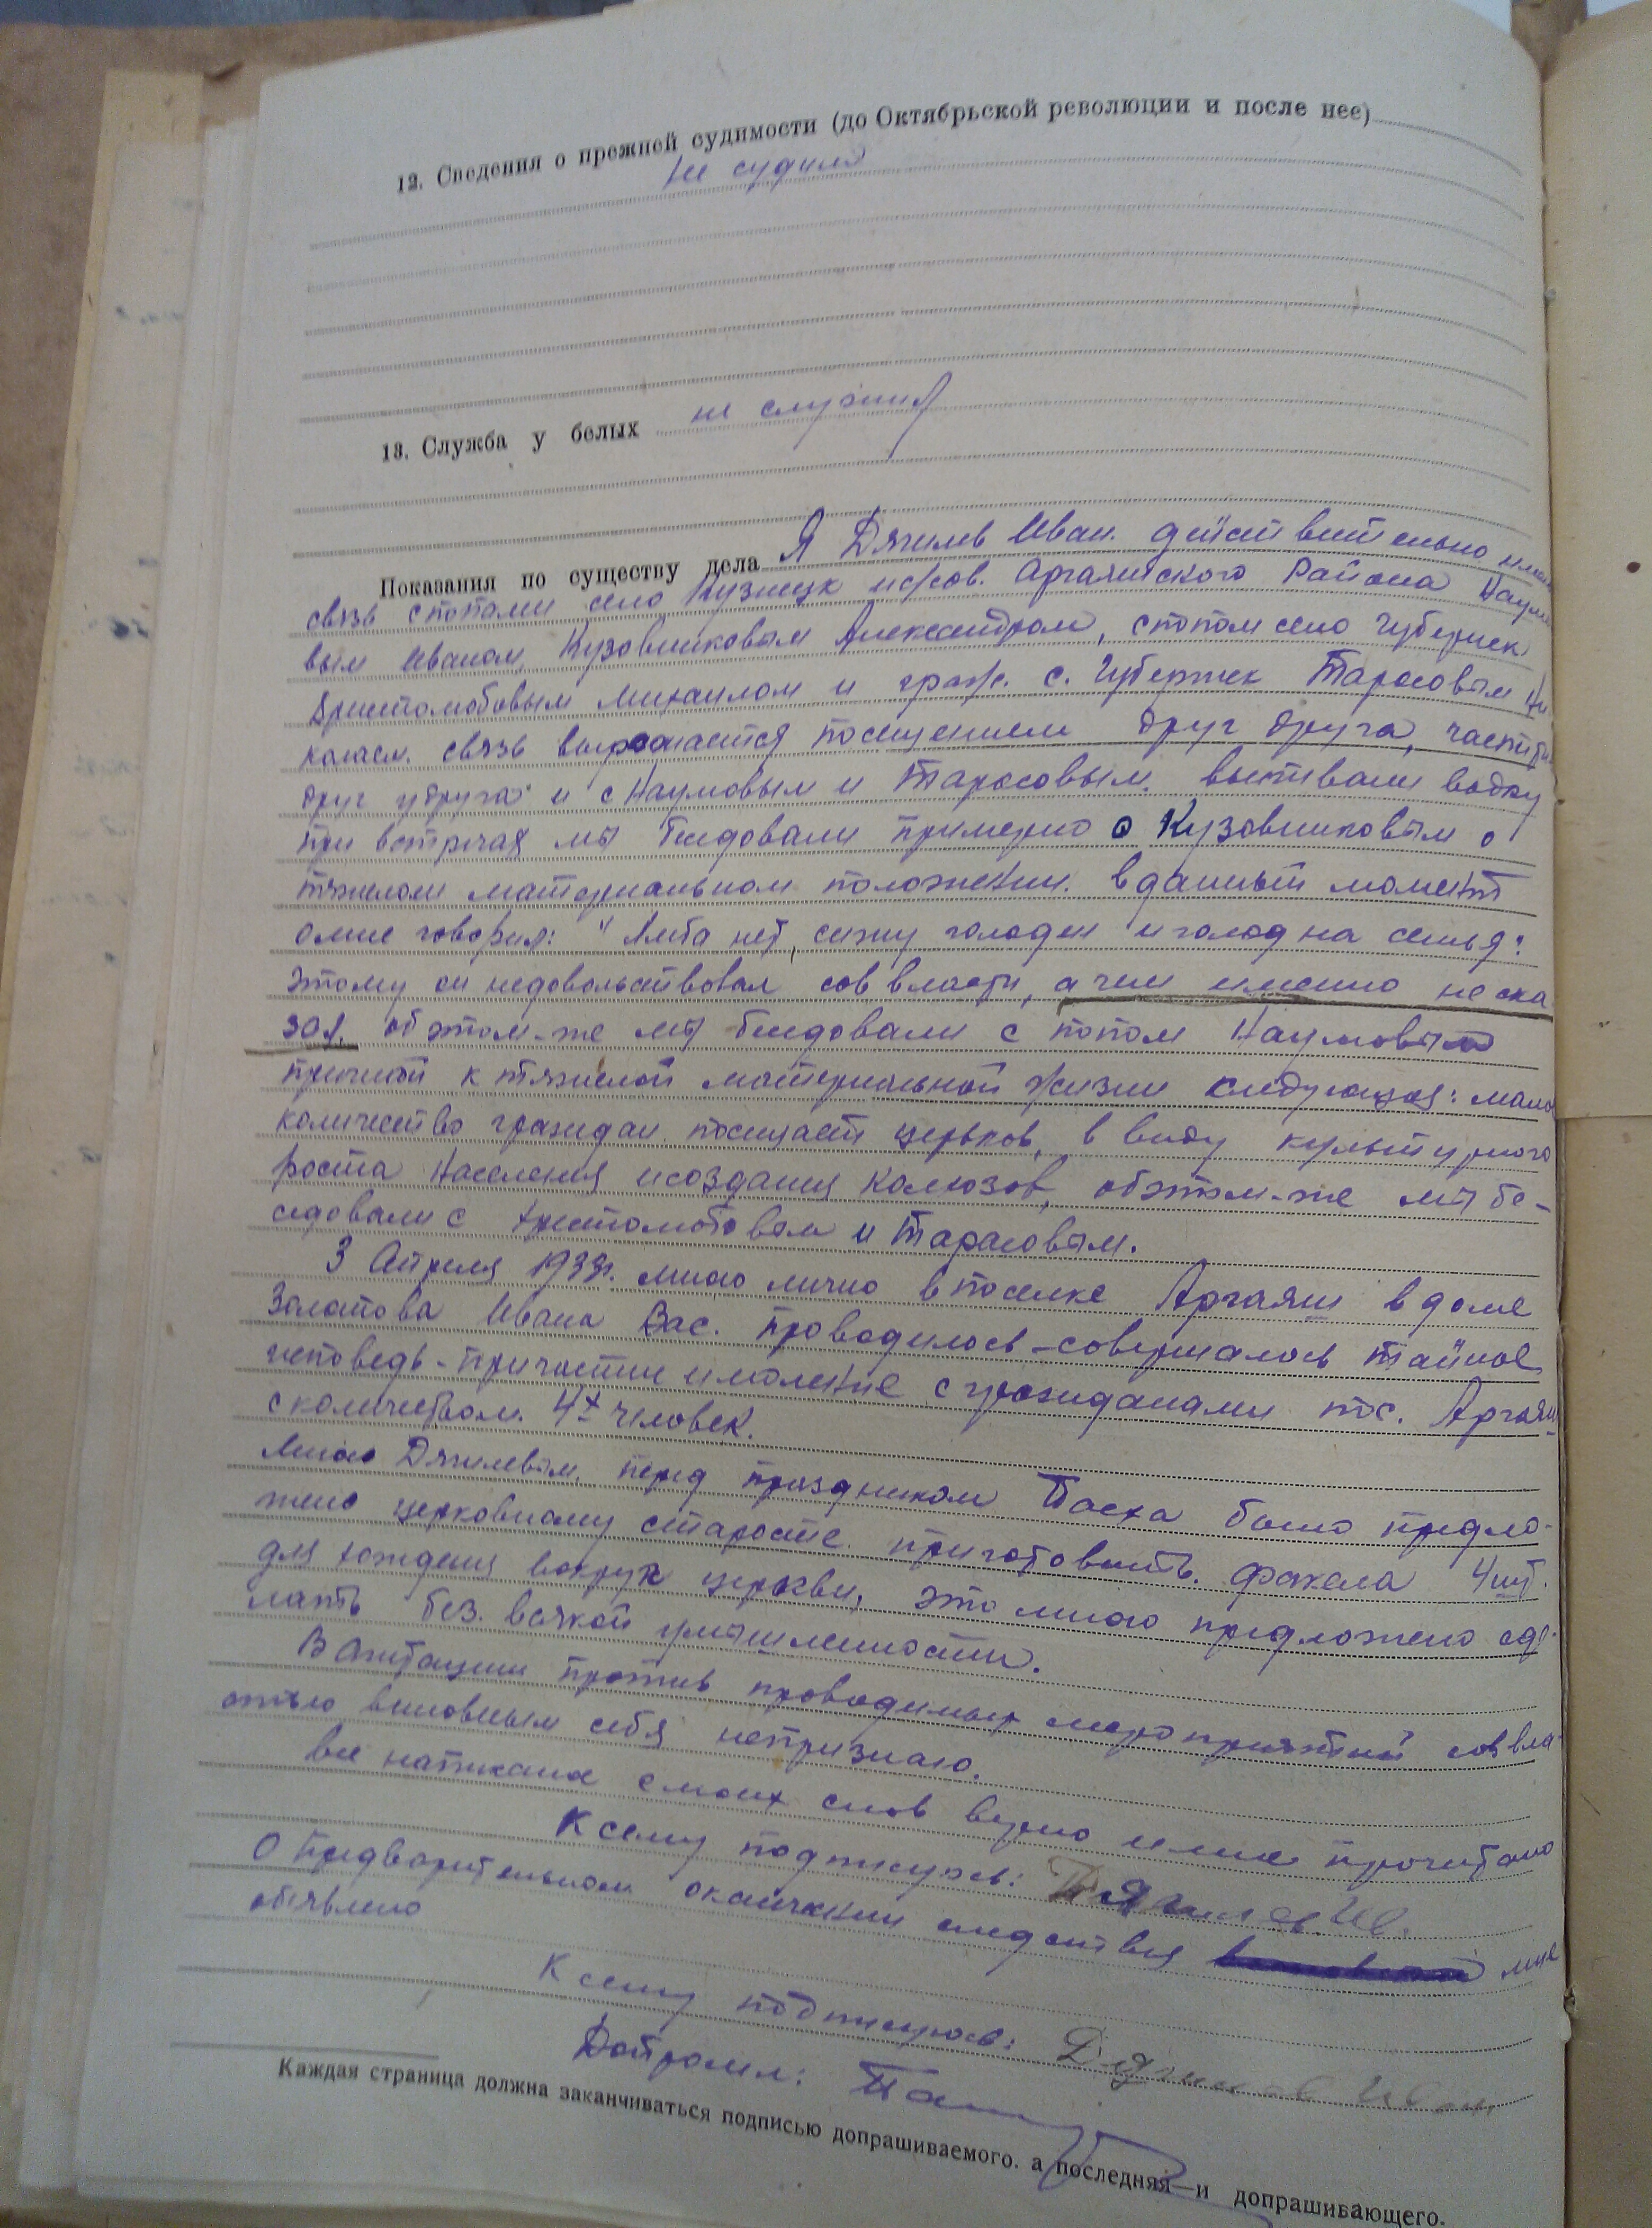 12. Сведения о прежней судимости (до Октябрьской революции и после нее)
не судим
13. Служба у белых не служил
Показания по существу дела Я Дягилев Иван. действительно имел
связь с попами село Кузнецк Аргаяшского Района Наумо
вым Иваном, Кузовниковым Александром, с попом село Губернск
Христолюбовым Михаилом и граж. с. Губернск Тарасовым Ни
колаем. связь выражается посещением друг друга,
друг у друга и с Наумовым и Тарасовым. выпивали водку
при встречах мы беедовали примерно с Кузовниковым о
тяжелом материальном положении. в данный момент
он мне говорил: "Хлеба нет, сижу голоден и голодна семья"
этому он недовольствовал сов власти, а чем именно не ска
зал. об этом-же мы беедовали с попом Наумовым
причиной к тяжелой материальной жизни следующая: мало
количество граждан посещает церьков, в виду культурного
роста Населения и создания Колхозов, об этом-же мы бе-
седовали с Христолюбовым и Тарасовым.
3 Апреля 1933г. мною лично в поселке Аргаяш в доме
Золотова Ивана Вас. проводилось-совершалось тайное
исповедь-причастие и моление с гражданами пос. Аргаяш
с количеством 4х человек.
Мною Дягилевым, перед праздником Пасха было предло-
жено церковному старосте. приготовить. факела 4 шт.
для хождения вокруг церкви, это мною предложено сде-
лать без. всякой умышленности.
В Агитации против проводимых мероприятий сов вла-
стью виновным себя непризнаю.
все написаное с моих слов верно и мне прочитано
К сему подпишусь: Дягилев Ив.
О предварительном окончании следствия мне
обявлено
К сему подпишусь: Дягилев Иван
Допросил:
Каждая страница должна заканчиваться подписью допрашиваемого. а последняя—и допрашивающего.